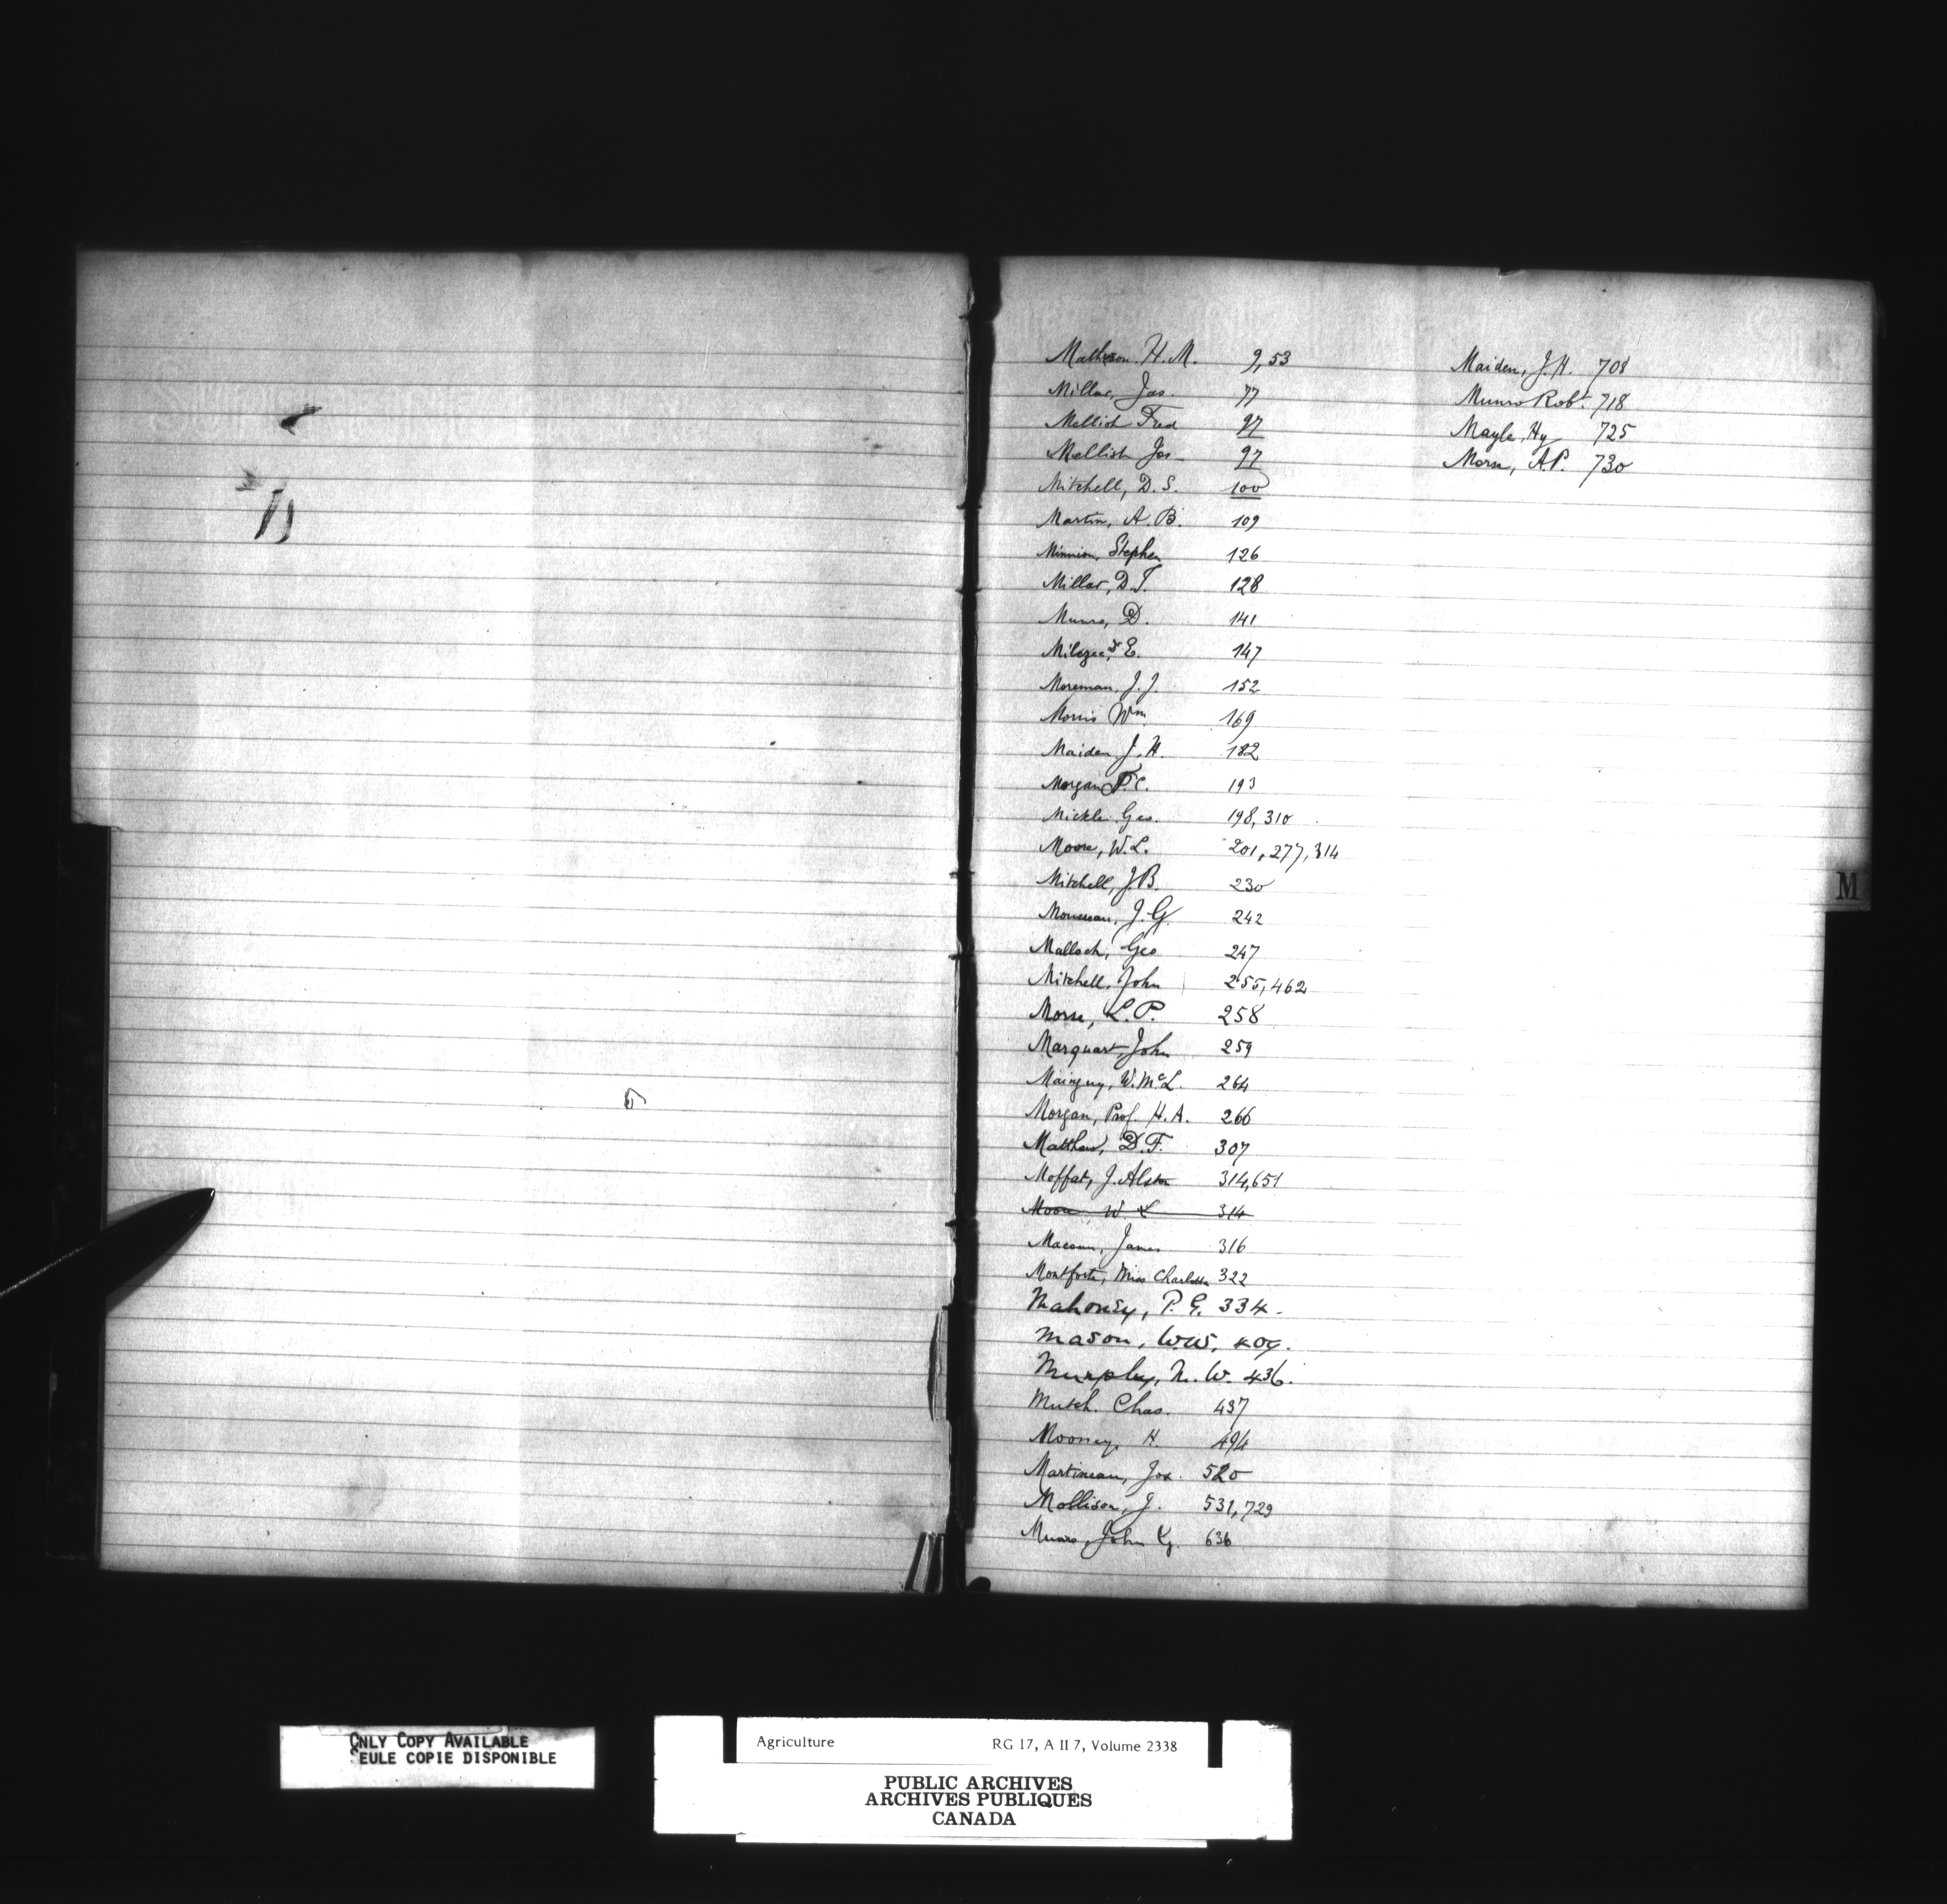 Matheson H. M. 9, 53
Millar, Jas. 77
Mellish Fred 97
Mellish Jos 97
Mitchell, D. S. 100
Martin, A. B. 109
Minnion, Stephen 126
Millar, D. T. 128
Munro, D. 141
E. 147
Moreman, J. J. 152
Morris Wm 169
Maiden J. H. 182
Morgan F. C. 193
Mickle Geo. 198, 310
Moore, W. L. 201, 277, 314
Mitchell, J. B. 230
Mousseau, J. G. 242
Malloch, Geo 247
Mitchell, John 255, 462
Morse, L. P. 258
Marquart, John 259
Mainguy, W. McL. 264
Morgan, Prof. H. A. 266
Matthew, D. F. 307
Moffat, J. Alston 314, 651
Moore W. L 314
Macoun, James 316
Montforte, Miss Charlotte 322
Mahoney, P. G. 334.
Mason, W.W. 409.
Murphy, N. W. 436.
Mutch. Chas. 437
Mooney, H. 494
Martineau, Jos. 520
Mollison, J. 531, 729
Munro, John 636
Maiden, J. H. 708
Munro Robt. 718
Mayle, Hy 725
Morse, A. P. 730
M
ONLY COPY AVAILABLE
SEULE COPIE DISPONIBLE
Agriculture RG 17, A II 7, Volume 2338
PUBLIC ARCHIVES
ARCHIVES PUBLIQUES
CANADA